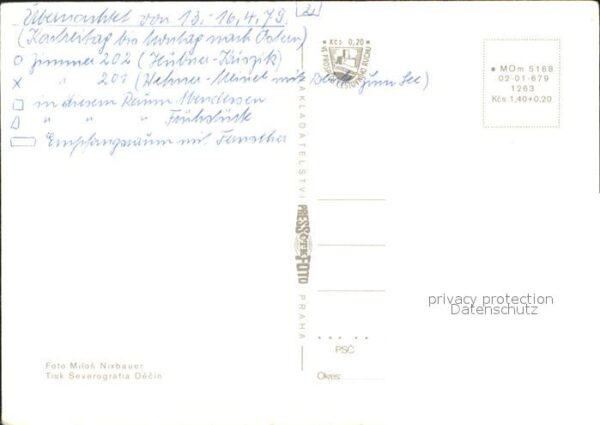 Übernachtet von 13.-16.4.79. 2
(Karfreitag bis Montag nach Ostern)
o Zimmer 202 (Hübner-
x " 201 (Wehner-Meinel mit Blick zum See)
□ in diesem Raum Abendessen
△ " " " Frühstück
▭ Empfangsraum mit Fernseher
* Kčs 0,20 *
CESTOVNÍHO RUCHU
* MOm 5188
02-01-679
1263
Kčs 1,40+0,20
NAKLADATELSTVÍ
PRESSFOTO
PRAHA
privacy protection
Datenschutz
PSČ
Okres:
Foto Miloš Nixbauer
Tisk Severografia Děčín